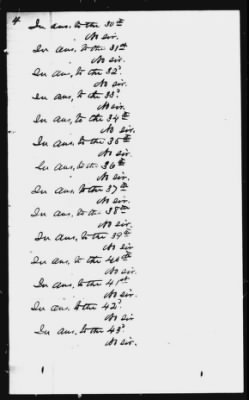 4
In ans. to the 30th
No sir.
In ans. to the 31st
No sir.
In ans. to the 32d
No sir.
In ans. to the 33d
No sir.
In ans. to the 34th
No sir.
In ans. to the 35th
No sir.
In ans. to the 36th
No sir.
In ans. to the 37th
No sir.
In ans. to the 38th
No sir.
In ans. to the 39th
No sir
In ans. to the 40th
No sir.
In ans. to the 41st
No sir.
In ans. to the 42d
No sir
In ans. to the 43d
No sir.